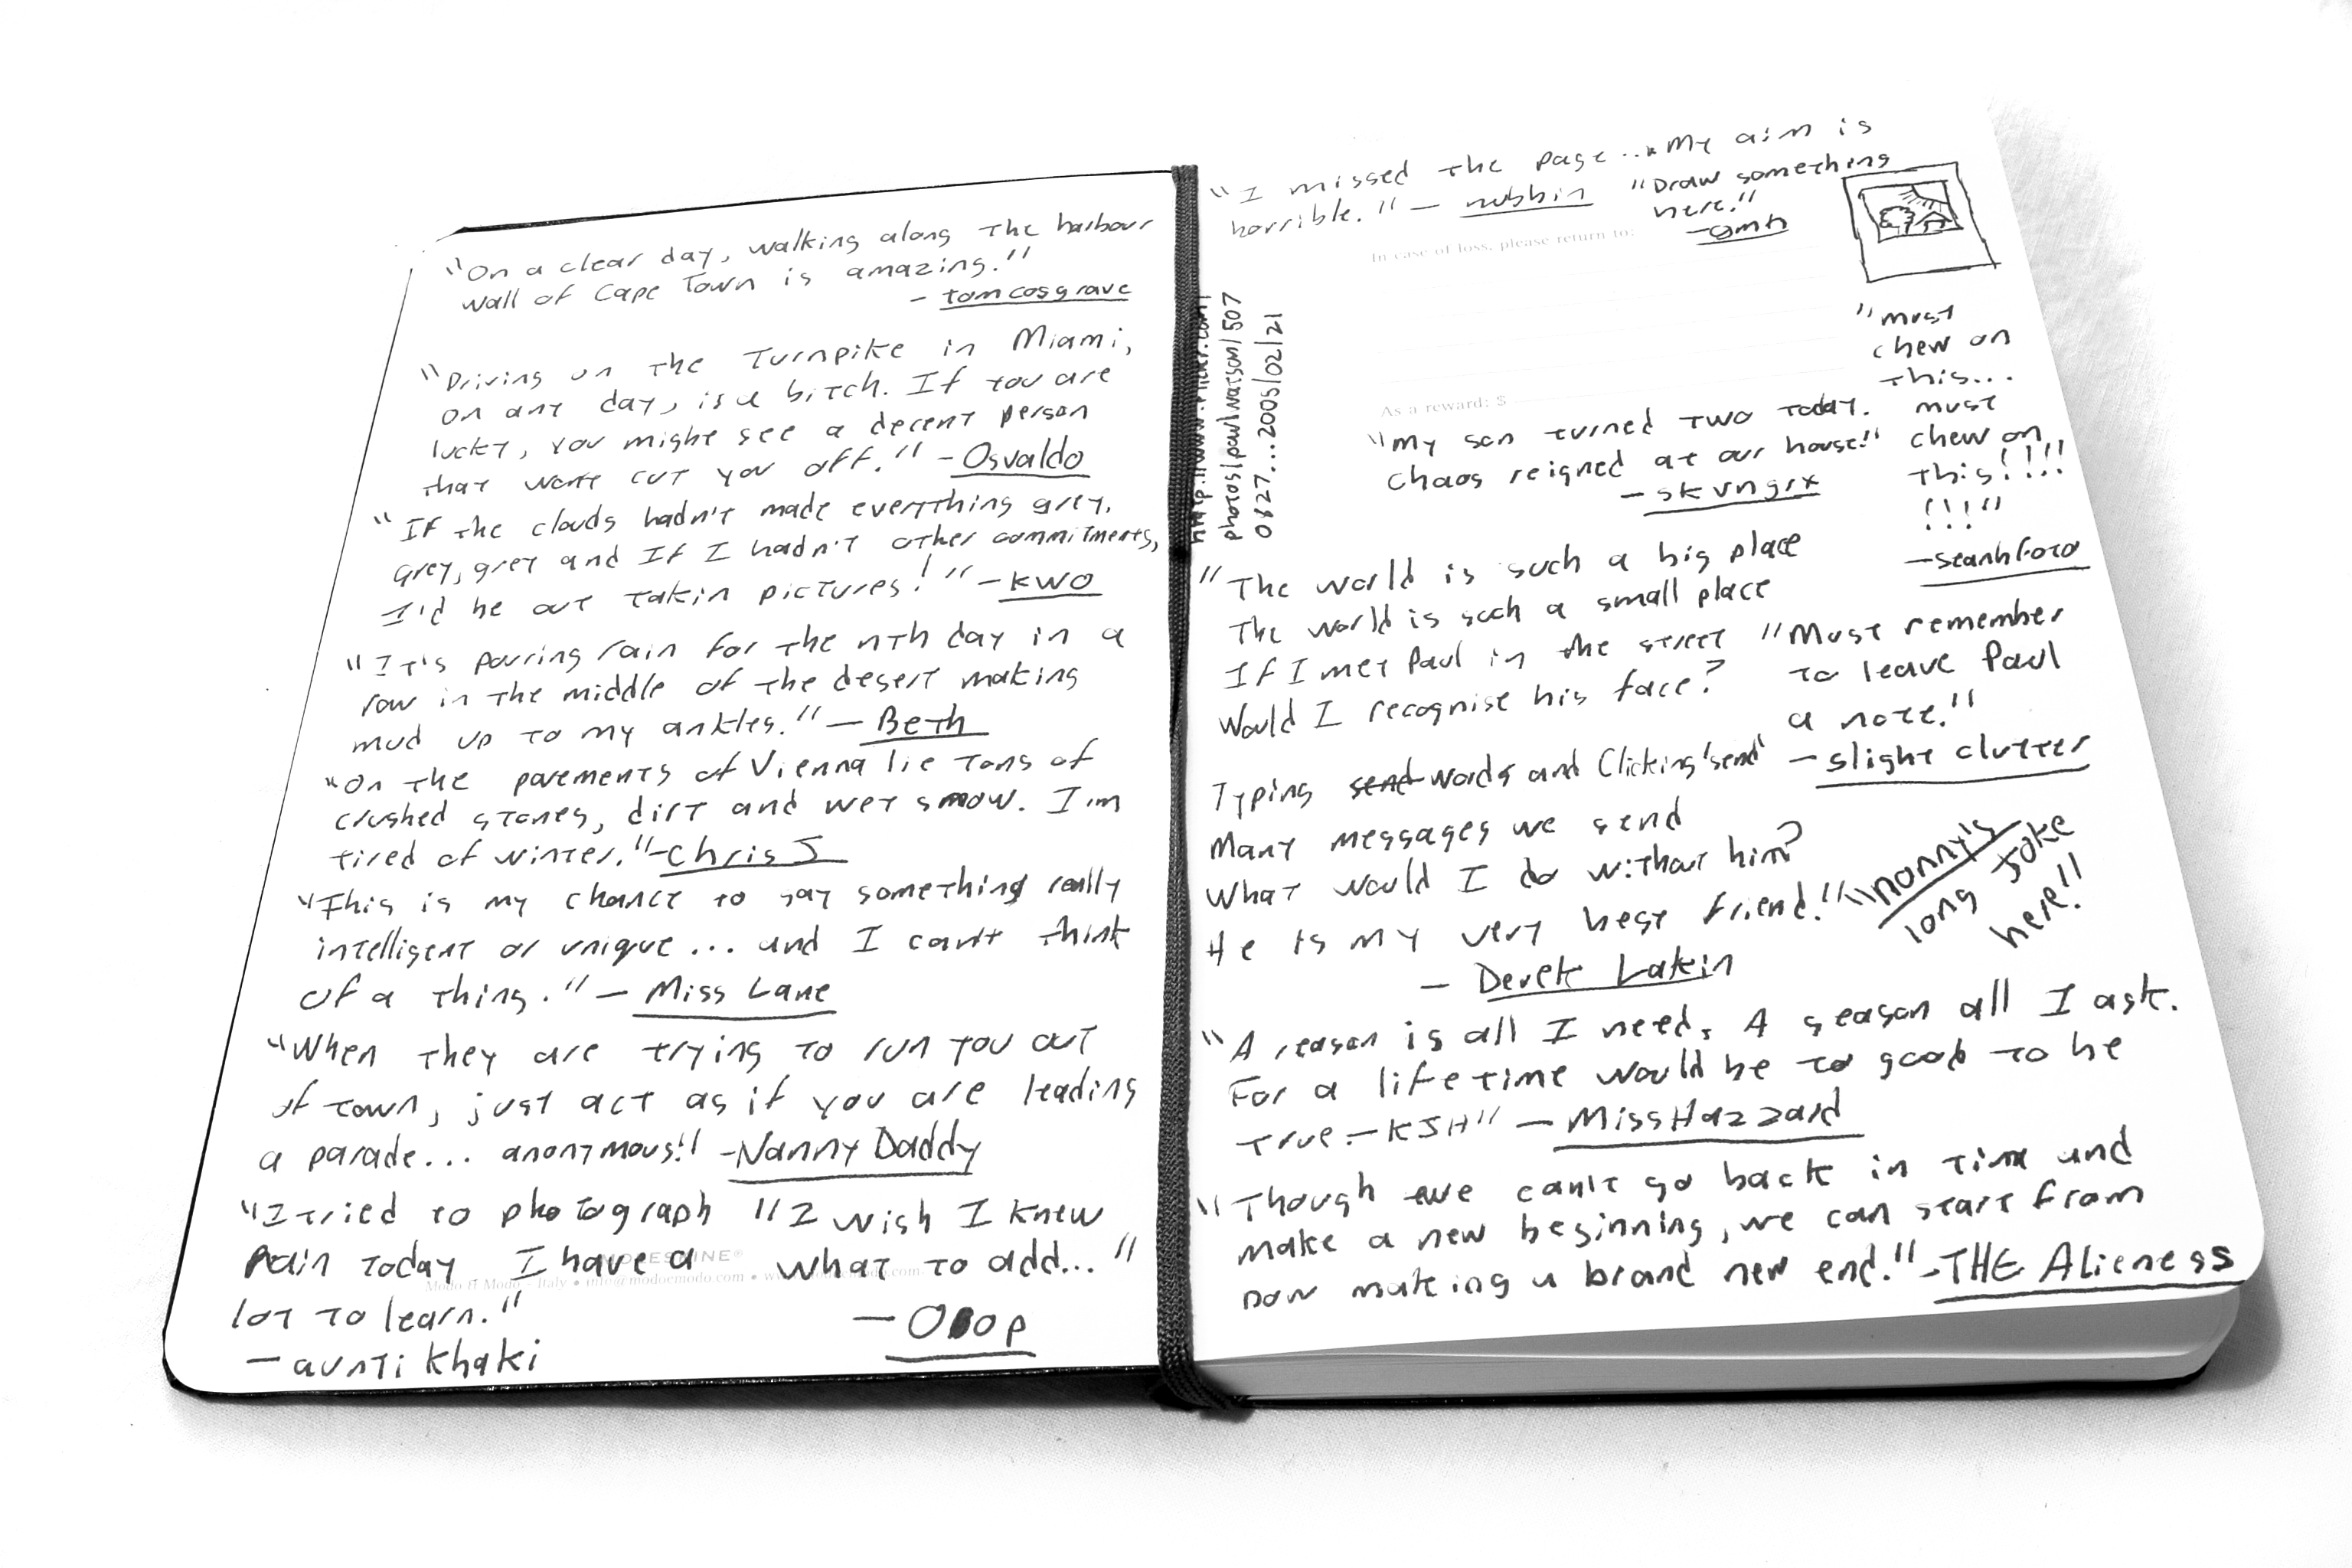 "On a clear day, walking along the harbour
wall of Cape Town is amazing."
- tomcosgrave
"Driving on the Turnpike in Miami,
on any day, is a bitch. If you are
lucky, you might see a decent person
that wont cut you off." - Osvaldo
"If the clouds hadn't made everything grey,
grey, grey and If I hadn't other commitments,
I'd be out takin pictures!" - KWO
"It's pouring rain for the nth day in a
row in the middle of the desert making
mud up to my ankles." - Beth
"On the pavements of Vienna lie tons of
crushed stones, dirt and wet snow. I'm
tired of winter." - Chris J
"This is my chance to say something really
intelligent or unique... and I can't think
of a thing." - Miss Lane
"When they are trying to run you out
of town, just act as if you are leading
a parade... anonymous!" - Nanny Daddy
"I tried to photograph
Pain today I have a
lot to learn."
- aunti khaki
"I wish I knew
what to add..."
- OOOP
MOLESKINE®
Modo & Modo - Italy • info@modoemodo.com •
"I missed the page... My aim is
horrible." - nubbin
"Draw something
here."
- gmh
In case of loss, please return to:
As a reward: $
http://www.flickr.com/
photos/paulwatson/507
0827...2005/02/21
"My son turned two today.
Chaos reigned at our house!"
- skvngrx
"must
chew on
this...
must
chew on
this!!!!
!!!"
- seanhfoto
"The world is such a big place
The world is such a small place
If I met Paul in the street
Would I recognise his face?
Typing send words and Clicking 'send'
Many messages we send
What would I do without him?
He is my very best friend!"
- Derek Lakin
"Must remember
to leave Paul
a note."
- slight clutter
"nanny's
long joke
here!"
"A reason is all I need, A season all I ask.
For a lifetime would be to good to be
true. - KJH" - MissHazzard
"Though we can't go back in time and
make a new beginning, we can start from
now making a brand new end." - THE Alieness